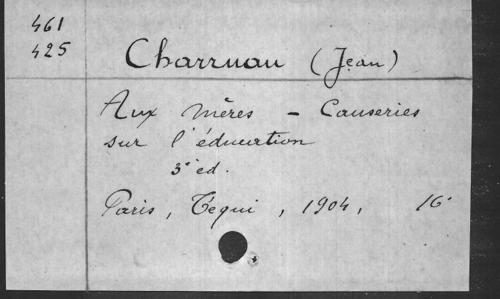 461
425
Charruau (Jean)
Aux mères - Causeries
sur l'éducation
3e éd.
Paris, Téqui, 1904, 16°